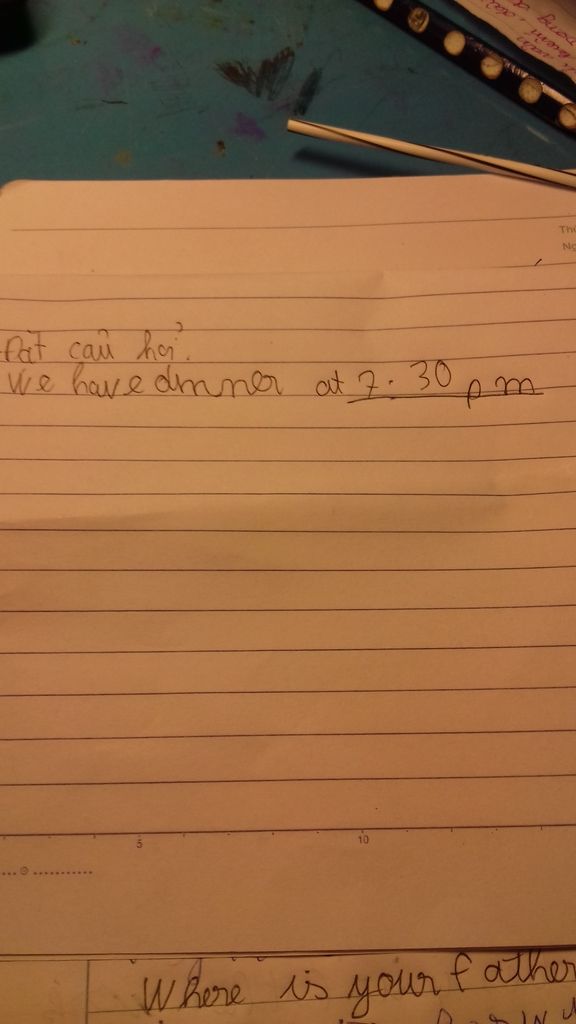 Thứ
Ng
Đặt câu hỏi.
We have dinner at 7. 30 pm
5 10
Where is your father